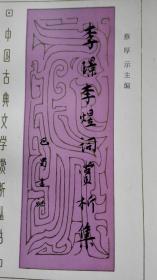 蔡厚示主编
李璟李煜词赏析集
巴蜀书社
中国古典文学赏析丛书